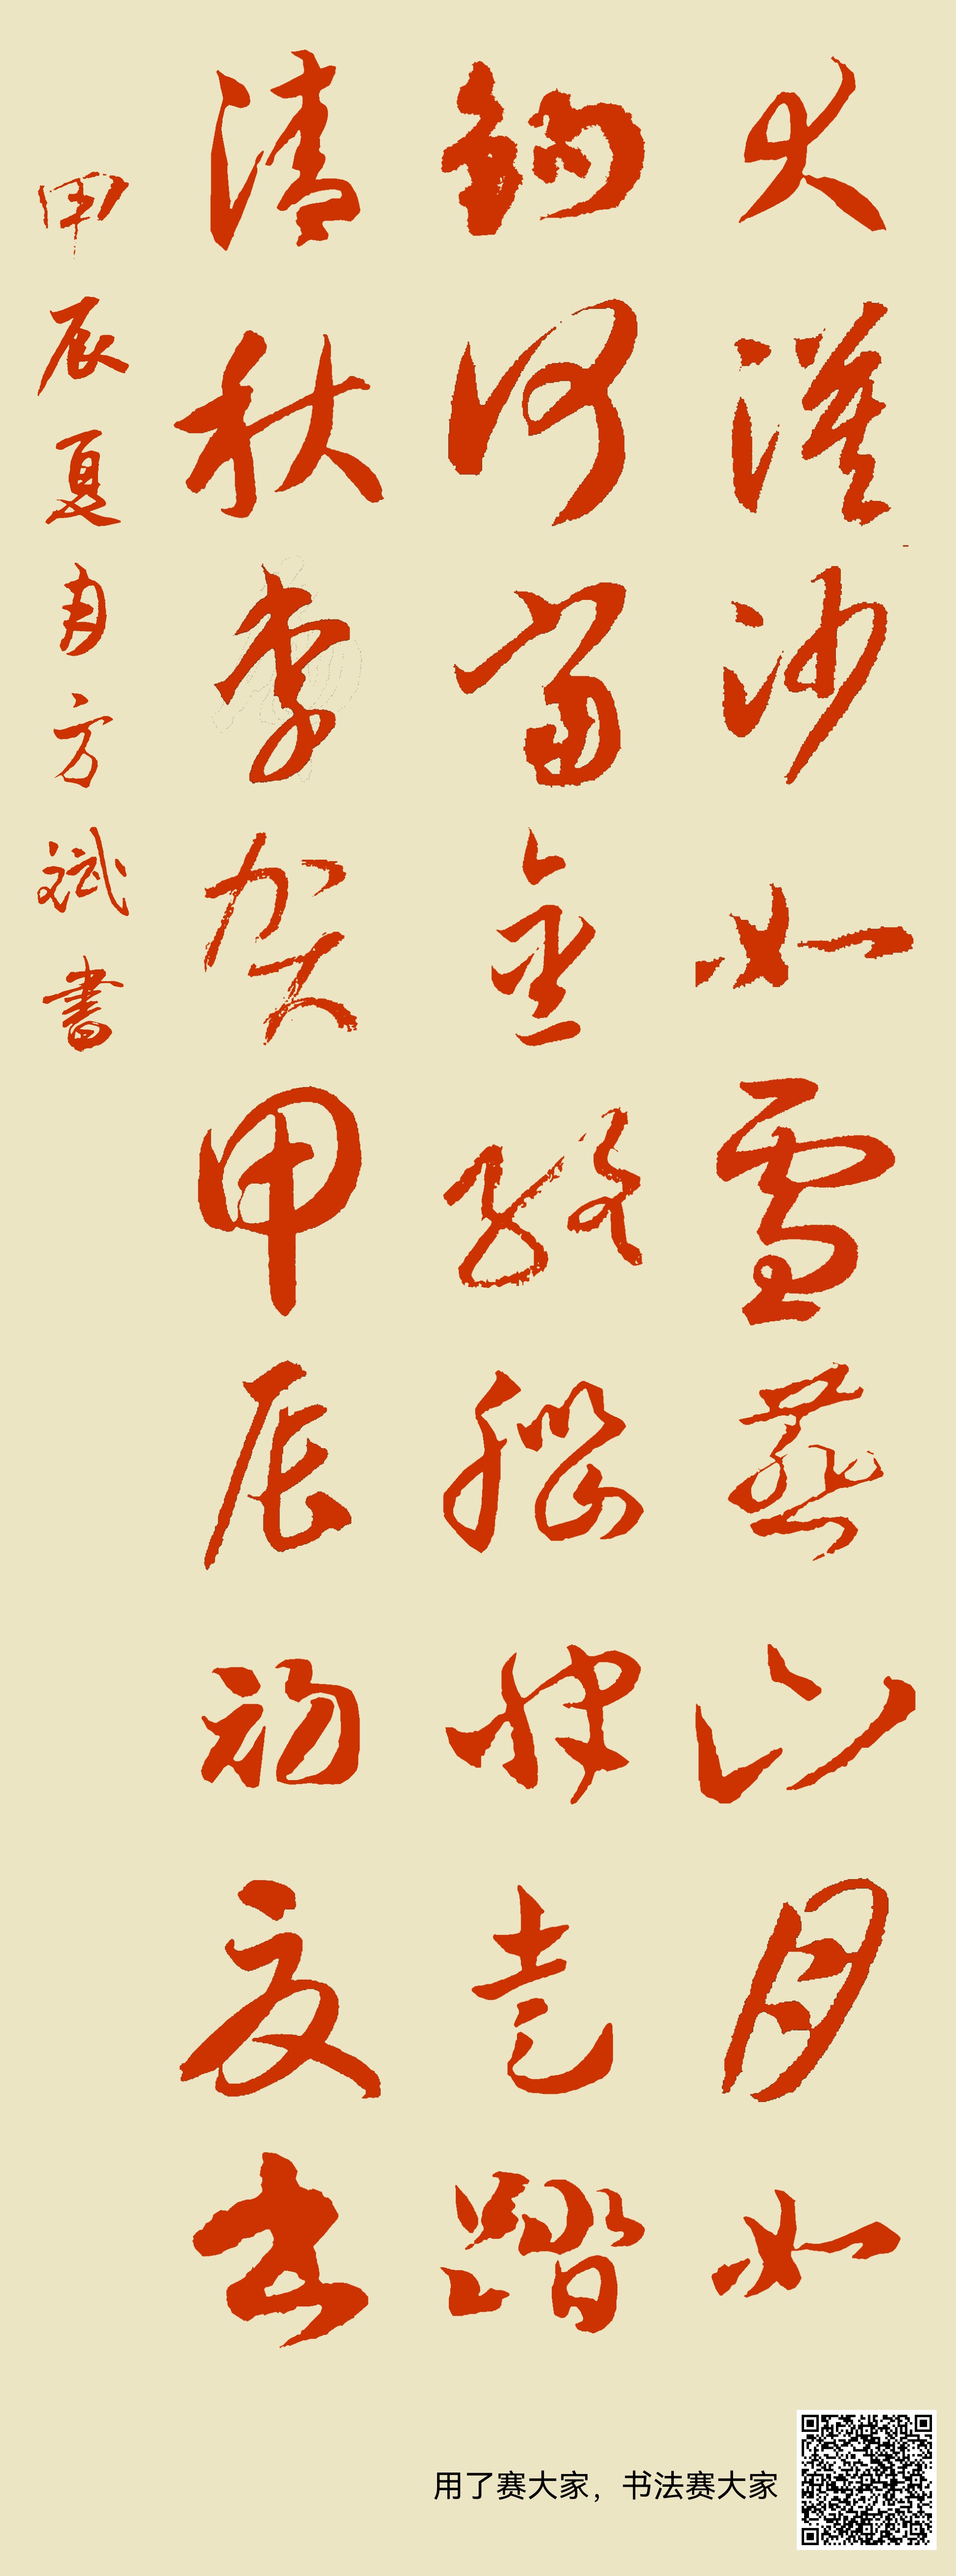 大漠沙如雪燕山月如
鈎何當金絡腦快走踏
清秋李贺甲辰初夏书
甲辰夏月方斌書
用了赛大家，书法赛大家